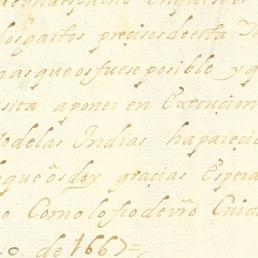 los gastos precisos de esta
mas que os fuese posible y q
sita aponer en execucion
o de las Indias ha parecid
que os doy gracias Espera
o Como lo fio de vro Cuida
o. de 1667=